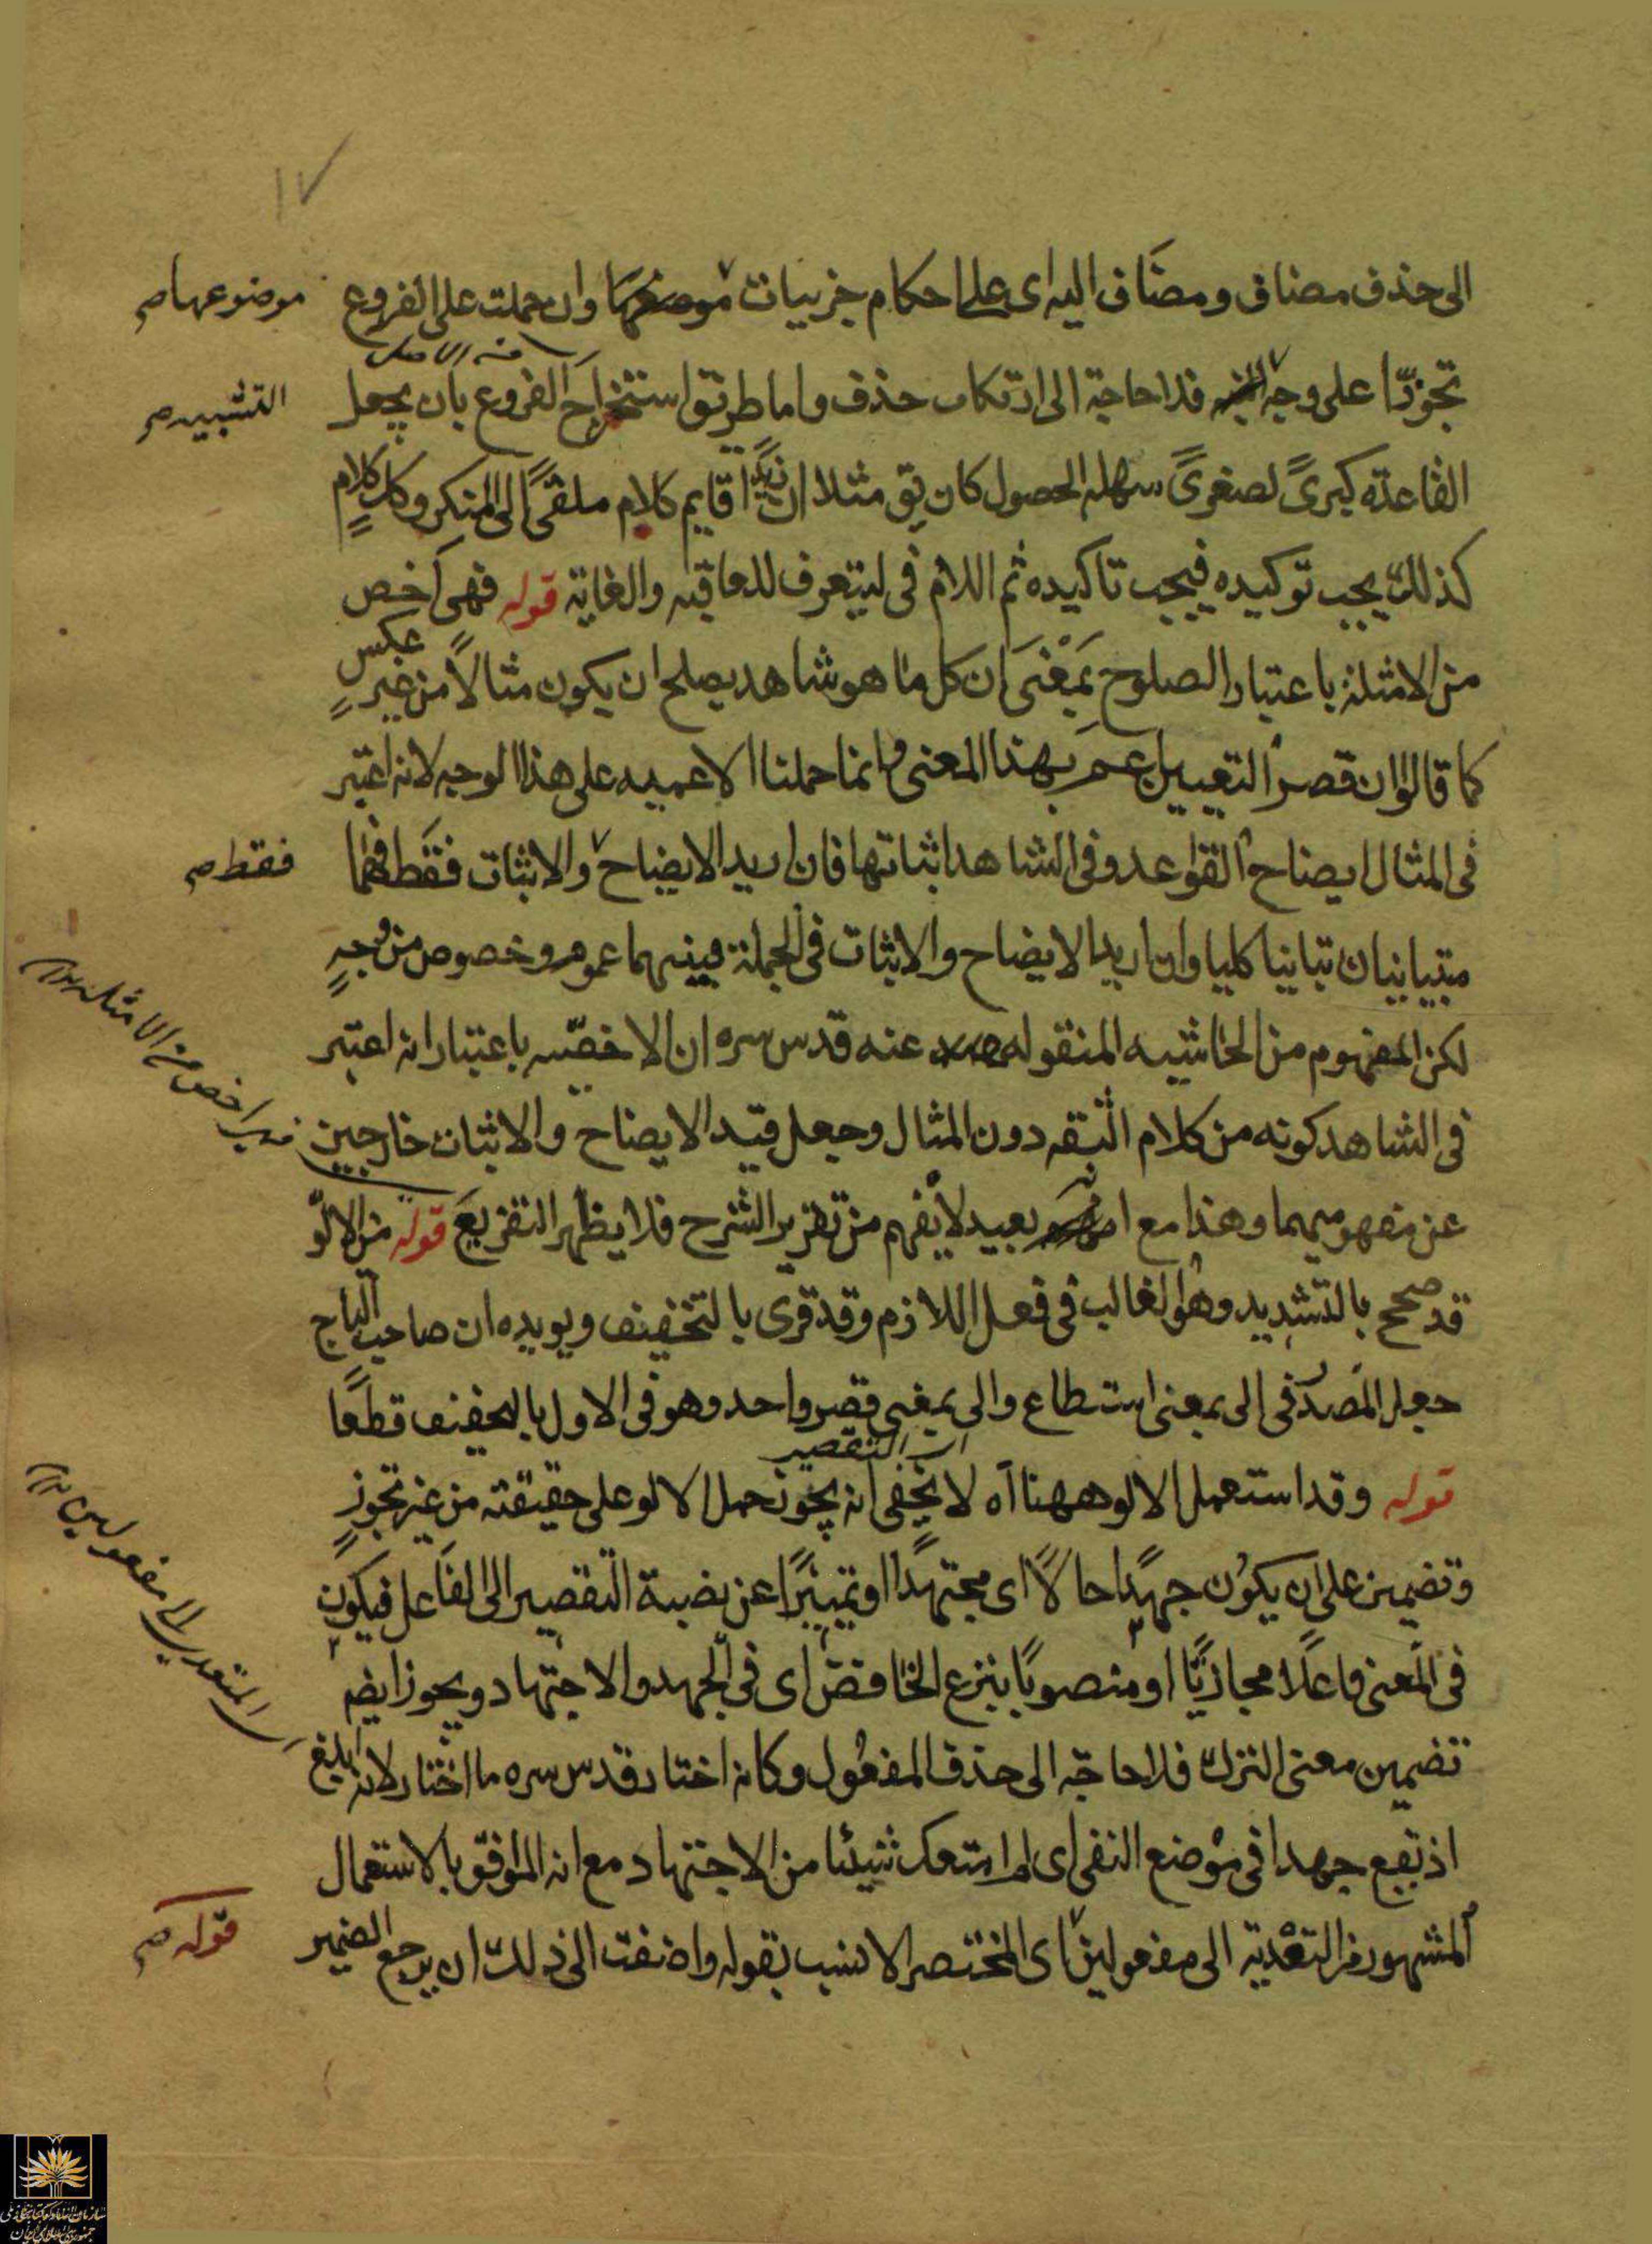 ١٧
الى حذف مضاف ومضاف اليه اى على احكام جزييات موضوعها وان حملت على الفروع
موضوعها صح
منه الاصل
تجوزا على وجه فلا حاجة الى ارتكاب حذف واما طريق استخراج الفروع بان يجعل
التشبيه صح
القاعدة كبرىً لصغرىً سهله الحصول كان يق مثلا ان زيدًا قايم كلام ملقىً الى المنكر وكل كلامٍ
كذلك يجب توكيده فيجب تاكيده ثم اللام فى ليتعرف للعاقبه والغاية قوله فهى اخص
من الامثلة باعتبار الصلوح بمعنى ان كل ما هو شاهد يصلح ان يكون مثالاً من غير عكسٍ
كما قالوا ان قصر التعيين اعم بهذا المعنى وانما حملنا الاعميه على هذا الوجه لانه اعتبر
فى المثال ايضاح القواعد وفى الشاهد اثباتها فان اريد الايضاح والاثبات فقط فهما
فقط صح
متباينان تباينا كليا وان اريد الايضاح والاثبات فى الجملة فبينهما عموم وخصوص من وجهٍ
لكن المفهوم من الحاشيه المنقوله عنه قدس سره ان الاخصّيه باعتبار انه اعتبر
فى الشاهد كونه من كلام الثقه دون المثال وجعل قيد الايضاح والاثبات خارجين
اخص من الامثله
عن مفهوميهما وهذا مع انه بعيد لا يفهم من تقرير الشرح فلا يظهر التفريع قوله من الالوّ
قد صحح بالتشديد وهو الغالب فى فعل اللازم وقد قرى بالتخفيف ويويده ان صاحب التاج
جعل المصدر فى الى بمعنى استطاع والى بمعنى قصر واحد وهو فى الاول بالتخفيف قطعًا
اى التقصير
قوله وقد استعمل الالو ههنا اه لا يخفى انه يجوز حمل الالو على حقيقته من غير تجوزٍ
وتضمين على ان يكون جهدًا حالاً اى مجتهدًا او تمييزًا عن نسبة التقصير الى الفاعل فيكون
فى المعنى فاعلًا مجازيًا او منصوبًا بنزع الخافض اى فى الجهد والاجتهاد ويجوز ايضم
تضمين معنى الترك فلا حاجه الى حذف المفعول وكانه اختار قدس سره ما اختار لانه ابلغ
المتعدى الى مفعولين
اذ يقع جهدا فى موضع النفى اى لم امنعك شيئا من الاجتهاد مع انه الموافق بالاستعمال
المشهور من التعدية الى مفعولين اى المختصر الانسب بقوله واضفت الى ذلك ان يرجع الضمير
قوله صح